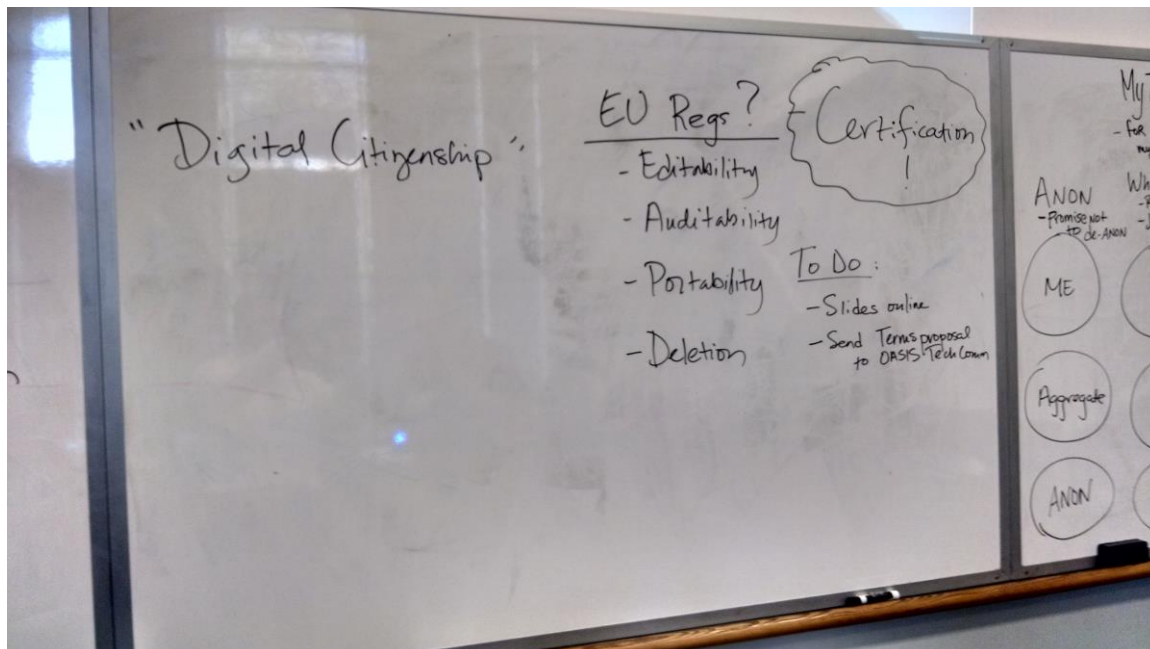 "Digital Citizenship"
EU Regs?
- Editability
- Auditability
- Portability
- Deletion
Certification
!
To Do:
- Slides online
- Send Terms proposal
to OASIS Tech Comm
My
- For
ANON
- Promise not
to de-ANON
ME
Aggregate
ANON